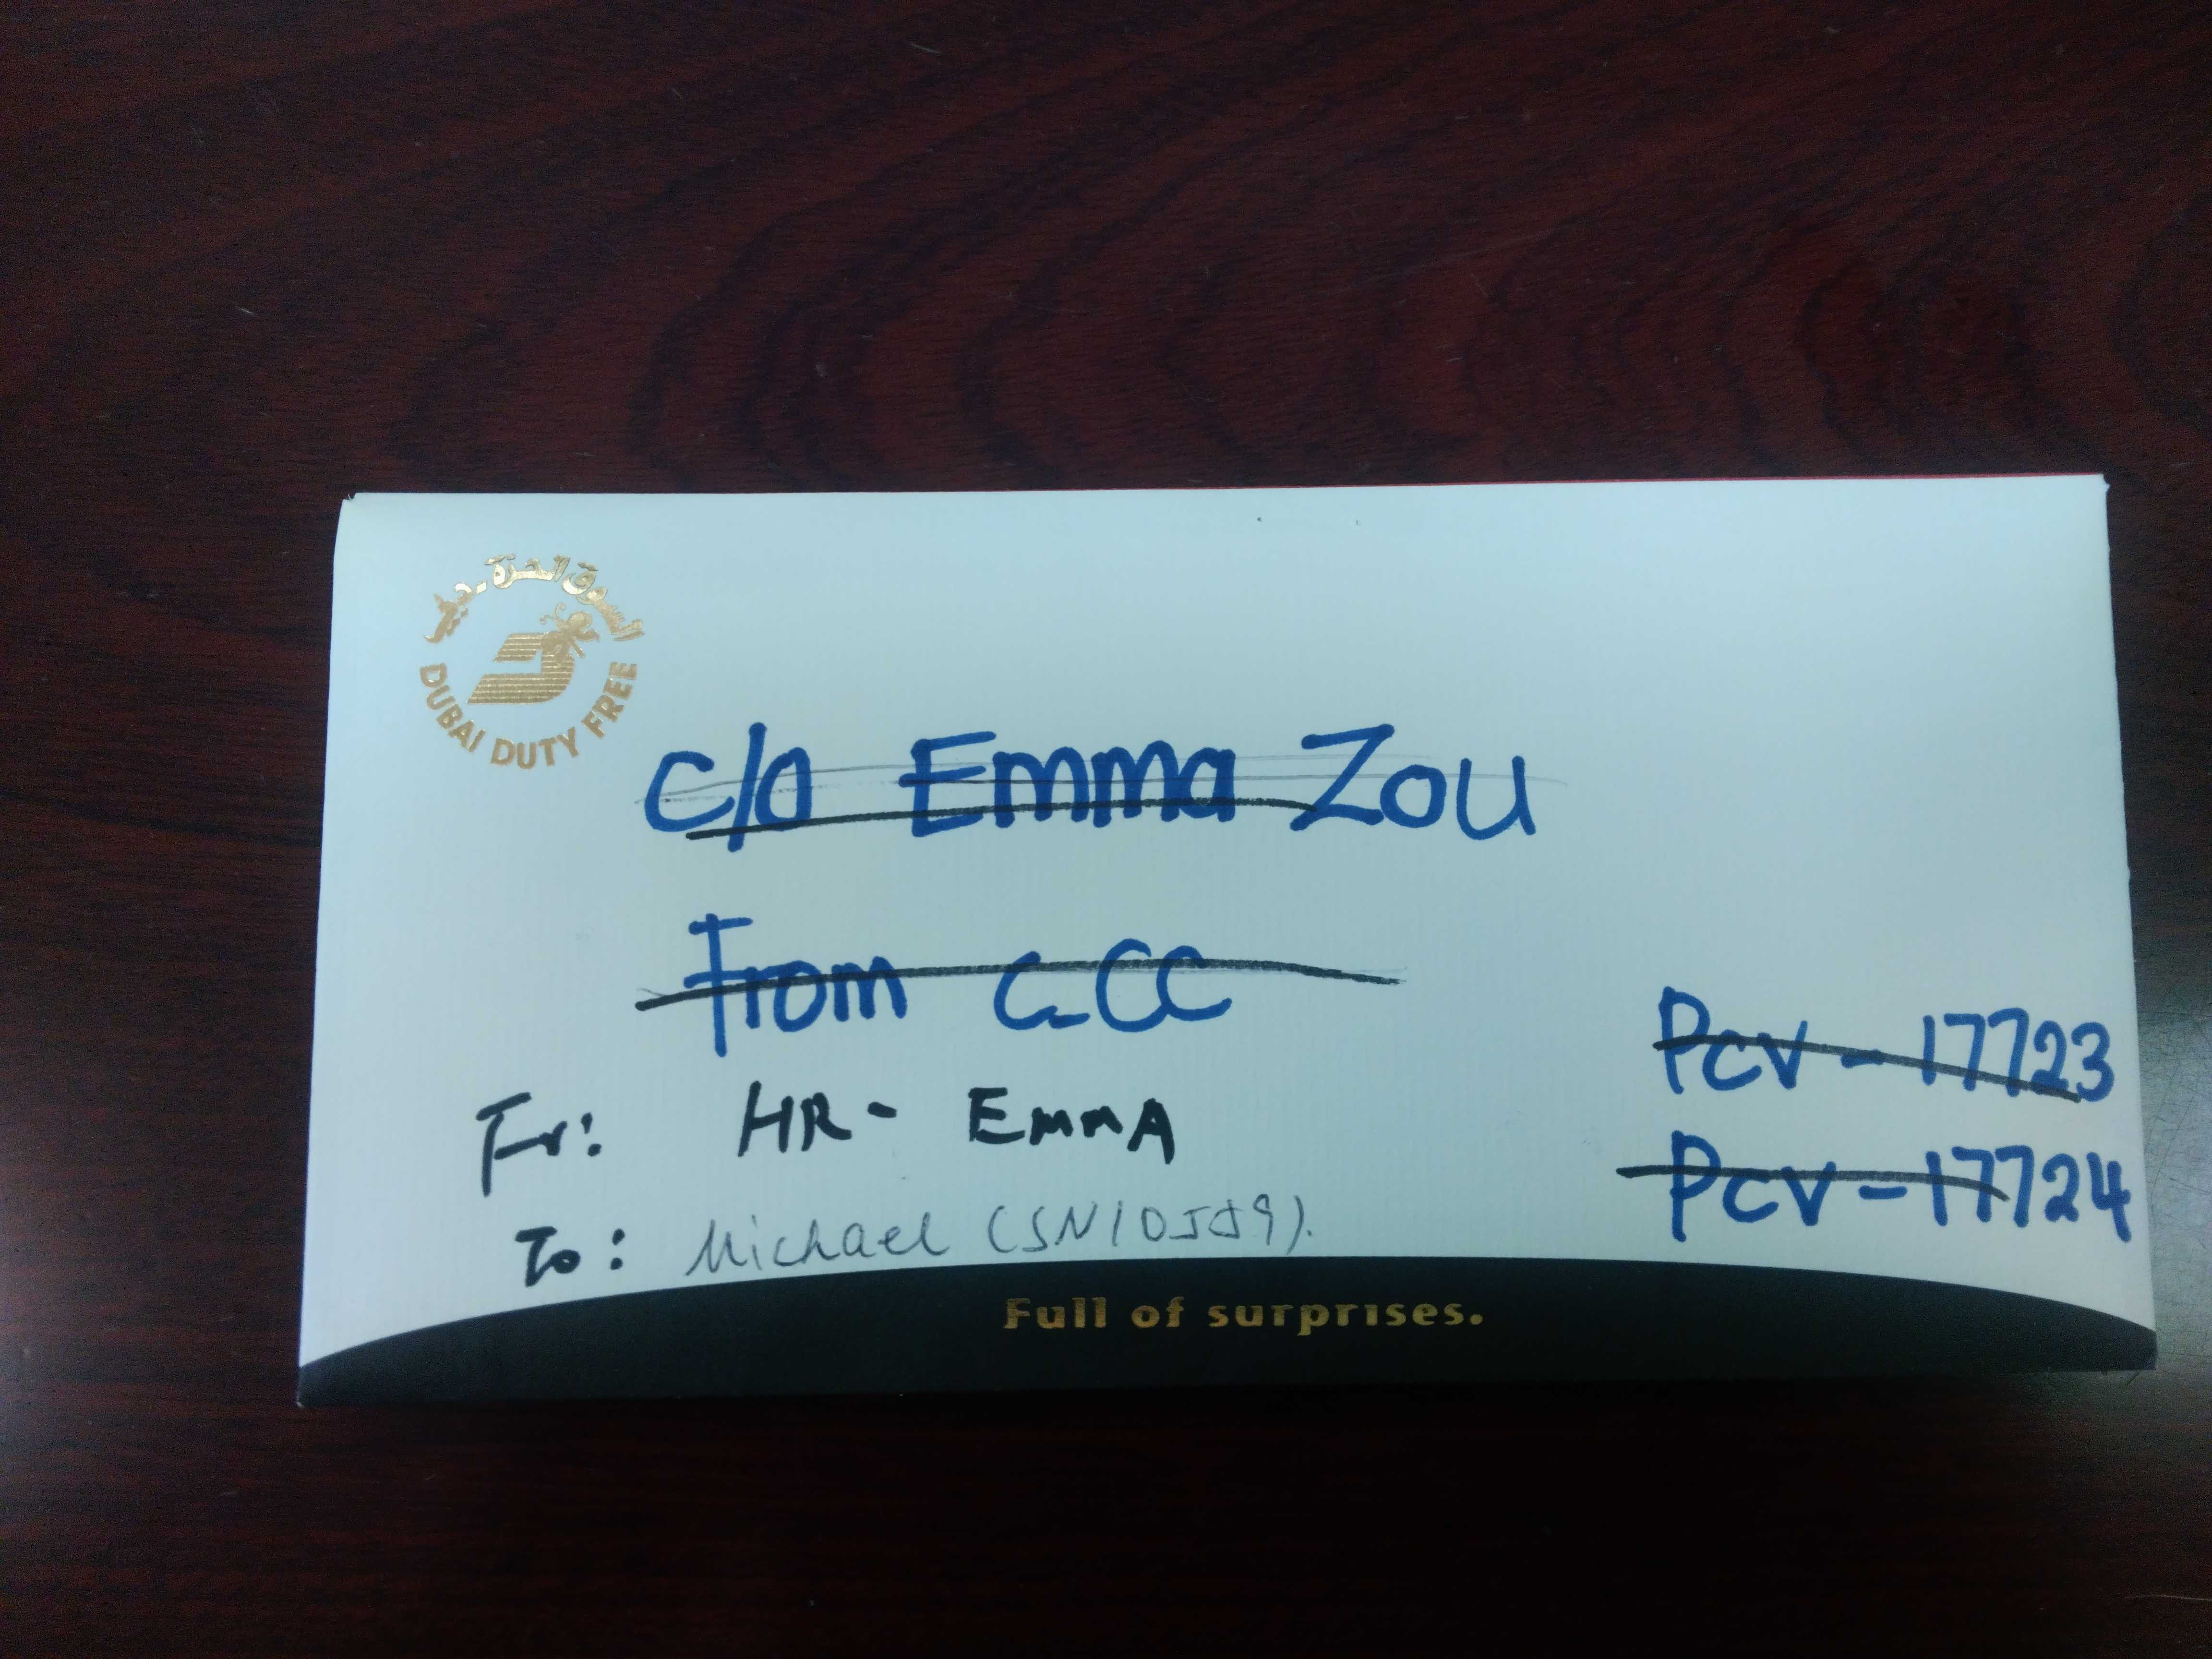 السوق الحرة - دبي
DUBAI DUTY FREE
c/o Emma Zou
From GCC
PCV - 17723
Fr: HR - EMMA
PCV - 17724
To: Michael (SN10559).
Full of surprises.